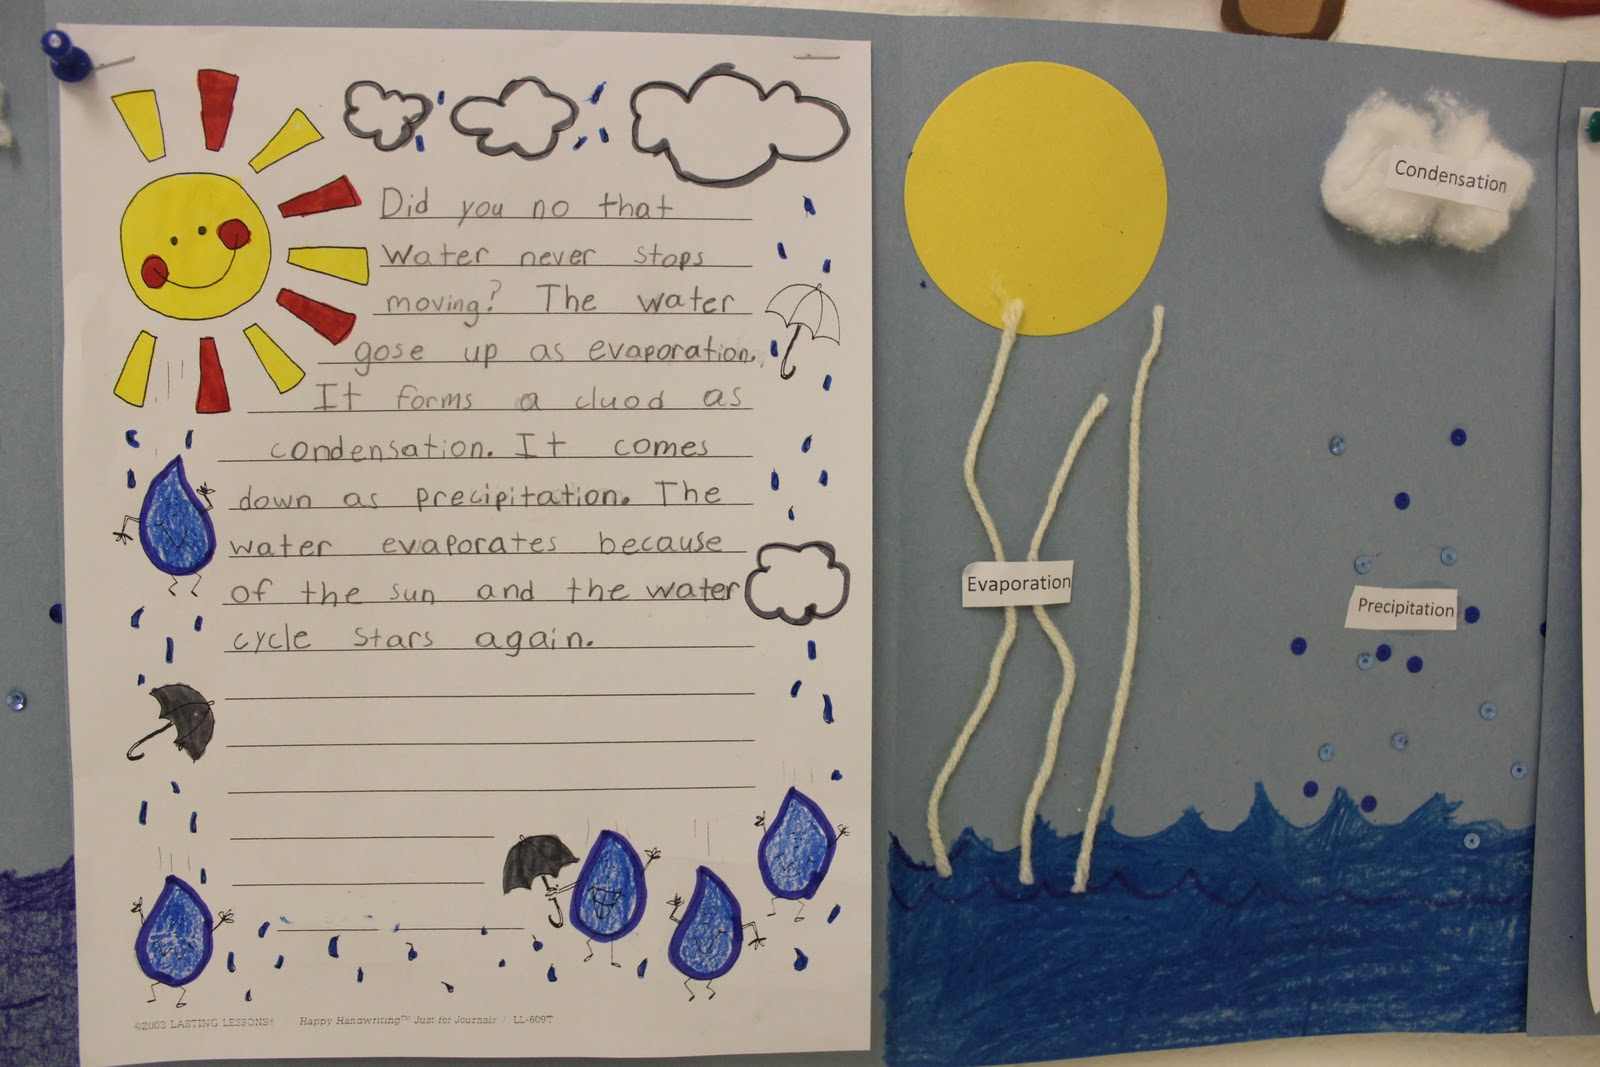 Did you no that
water never stops
moving? The water
gose up as evaporation.
It forms a cluod as
condensation. It comes
down as precipitation. The
water evaporates because
of the sun and the water
cycle stars again.
©2003 LASTING LESSONS® Happy Handwriting™ Just for Journals / LL-609T
Condensation
Evaporation
Precipitation